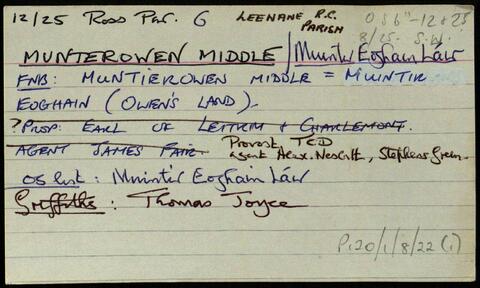 12/25 Ross Par. G LEENANE R.C. PARISH OS 6"-12+25
8/25. S.W.
MUNTEROWEN MIDDLE / Muintir Eoghain Láir
FNB: MUNTIEROWEN MIDDLE = MUINTIR
EOGHAIN (OWEN'S LAND).
? PROP: EARL OF LEITRIM & CHARLEMONT.
AGENT JAMES FAIR Provost TCD
agent Alex. Nesbitt, Stephens Green.
OS list: Muintir Eoghain Láir
Griffiths: Thomas Joyce
P120/1/8/22 (i)